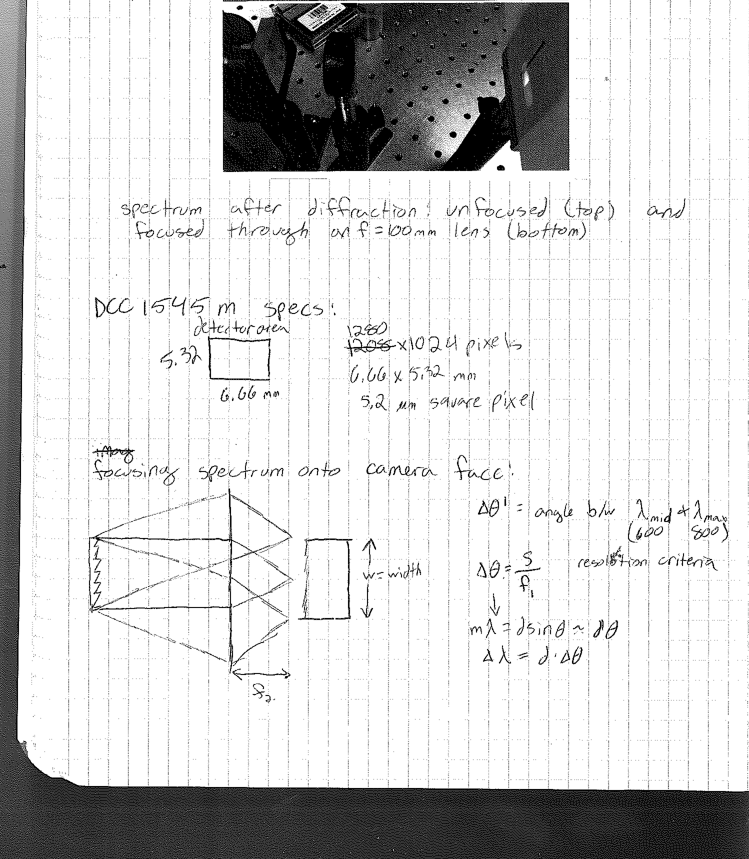 spectrum after diffraction: unfocused (top) and
focused through an f=100mm lens (bottom)
DCC 1545 m specs:
detector area
5.32
6.66 mm
1280
1208 x1024 pixels
6.66 x 5.32 mm
5.2 µm square pixel
imag
focusing spectrum onto camera face:
w=width
f₂
Δθ' = angle b/w λmid & λmax
(600 800)
Δθ = s/f₁ resolution criteria
mλ = dsinθ ~ dθ
Δλ = d·Δθ